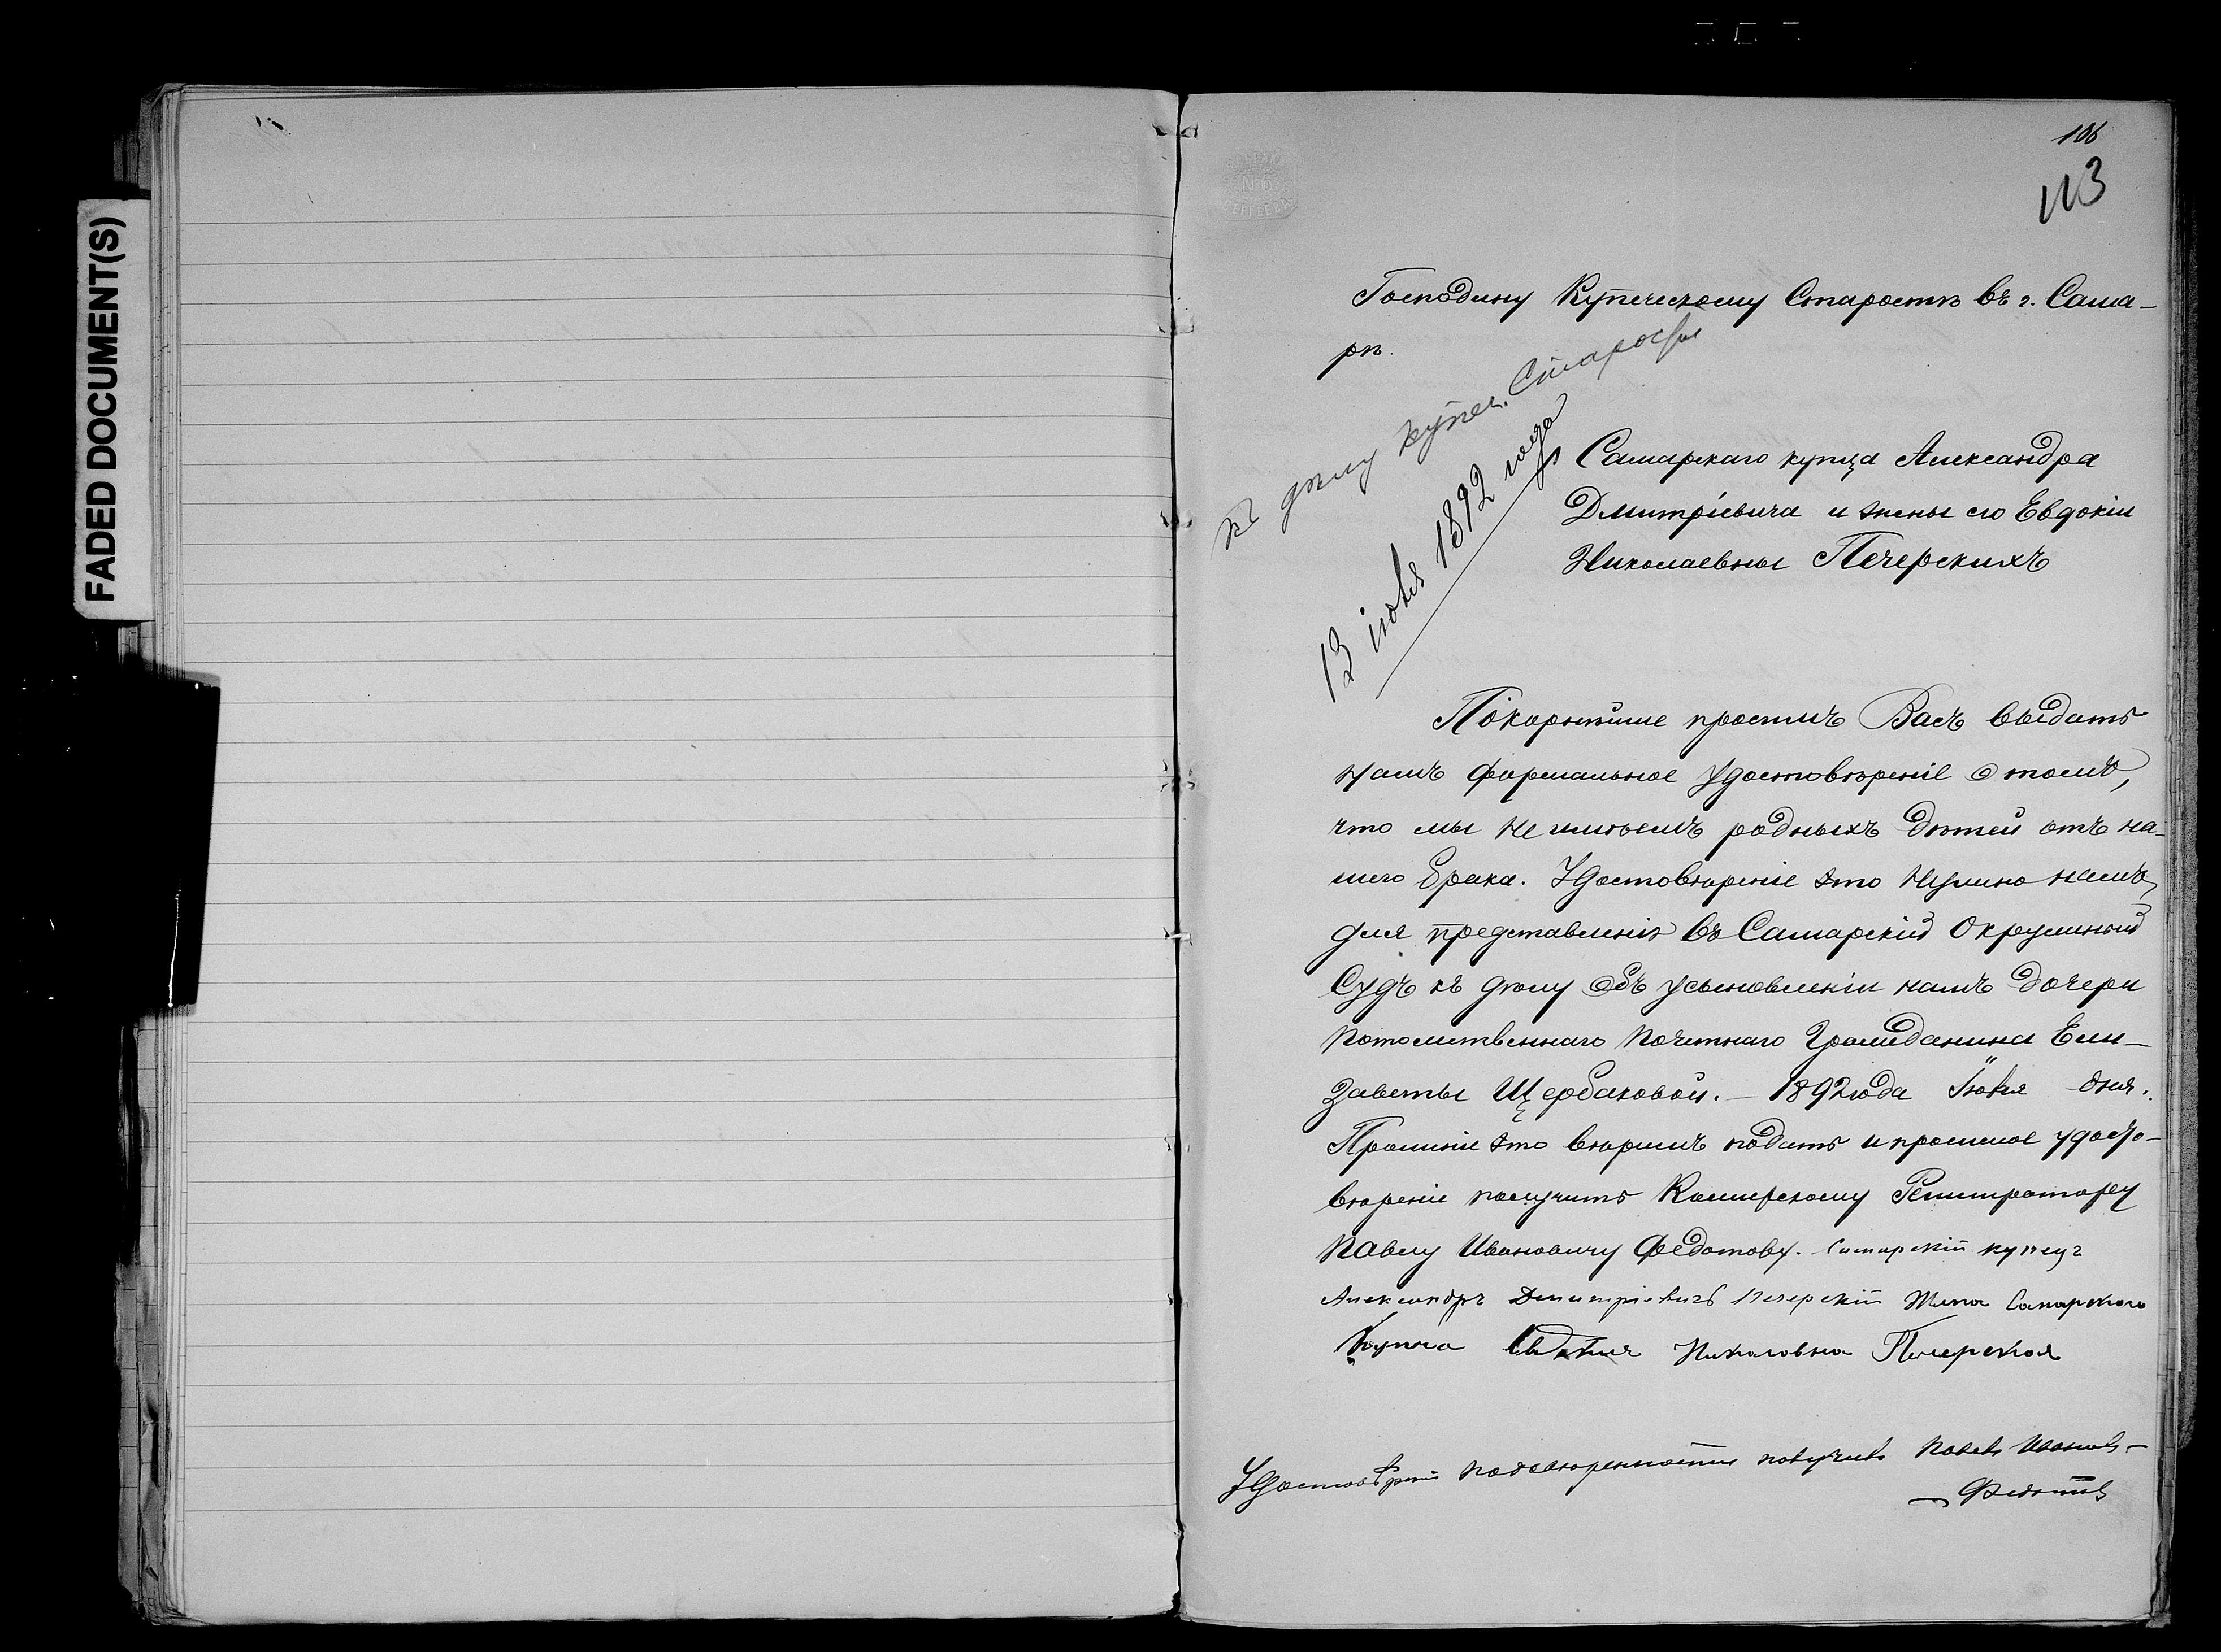 FADED DOCUMENT(S)
106
113
Господину Купеческому Старостѣ въ г. Сама-
рѣ.
Къ дѣлу купеч. Старосты
13 іюня 1892 года
Самарскаго купца Александра
Дмитріевича и жены его Евдокіи
Николаевны Печерскихъ
Покорнѣйше просимъ Васъ выдать
намъ формальное удостовѣреніе о томъ,
что мы не имѣемъ родныхъ дѣтей отъ на-
шего брака. Удостовѣреніе это нужно намъ,
для представленія въ Самарскій Окружный
Судъ къ дѣлу объ усыновленіи намъ дочери
Потомственнаго Почетнаго Гражданина Ели-
заветы Щербаковой. — 1892 года Іюня дня.
Прошеніе это вѣримъ подать и просимое удосто-
вѣреніе получить Коллежскому Регистратору
Павлу Ивановичу Федотову. Самарскій купецъ
Александръ Дмитріевичъ Печерскій Жена Самарскаго
Купца Евдокия Николовна Печерская
Удостовѣреніе по довѣренности получилъ Павелъ Иванов-
Федотовъ